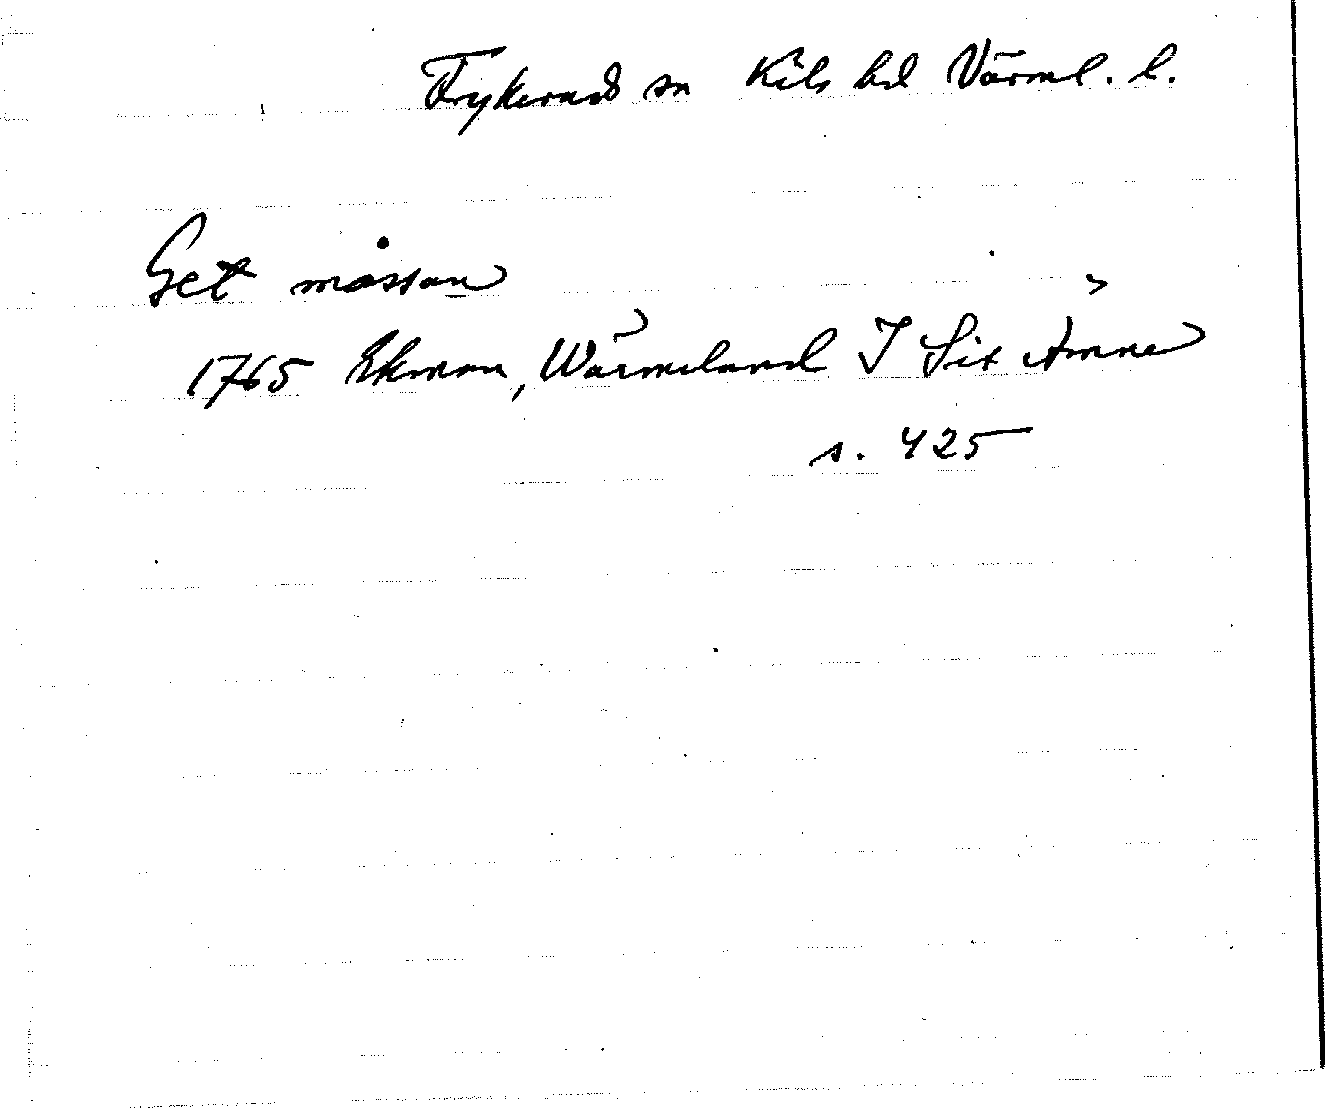 Frykerud sn Kils hd Värml. l.
Get måssan
1765 Ekman, Wärmeland I Sit Ämne
s. 425